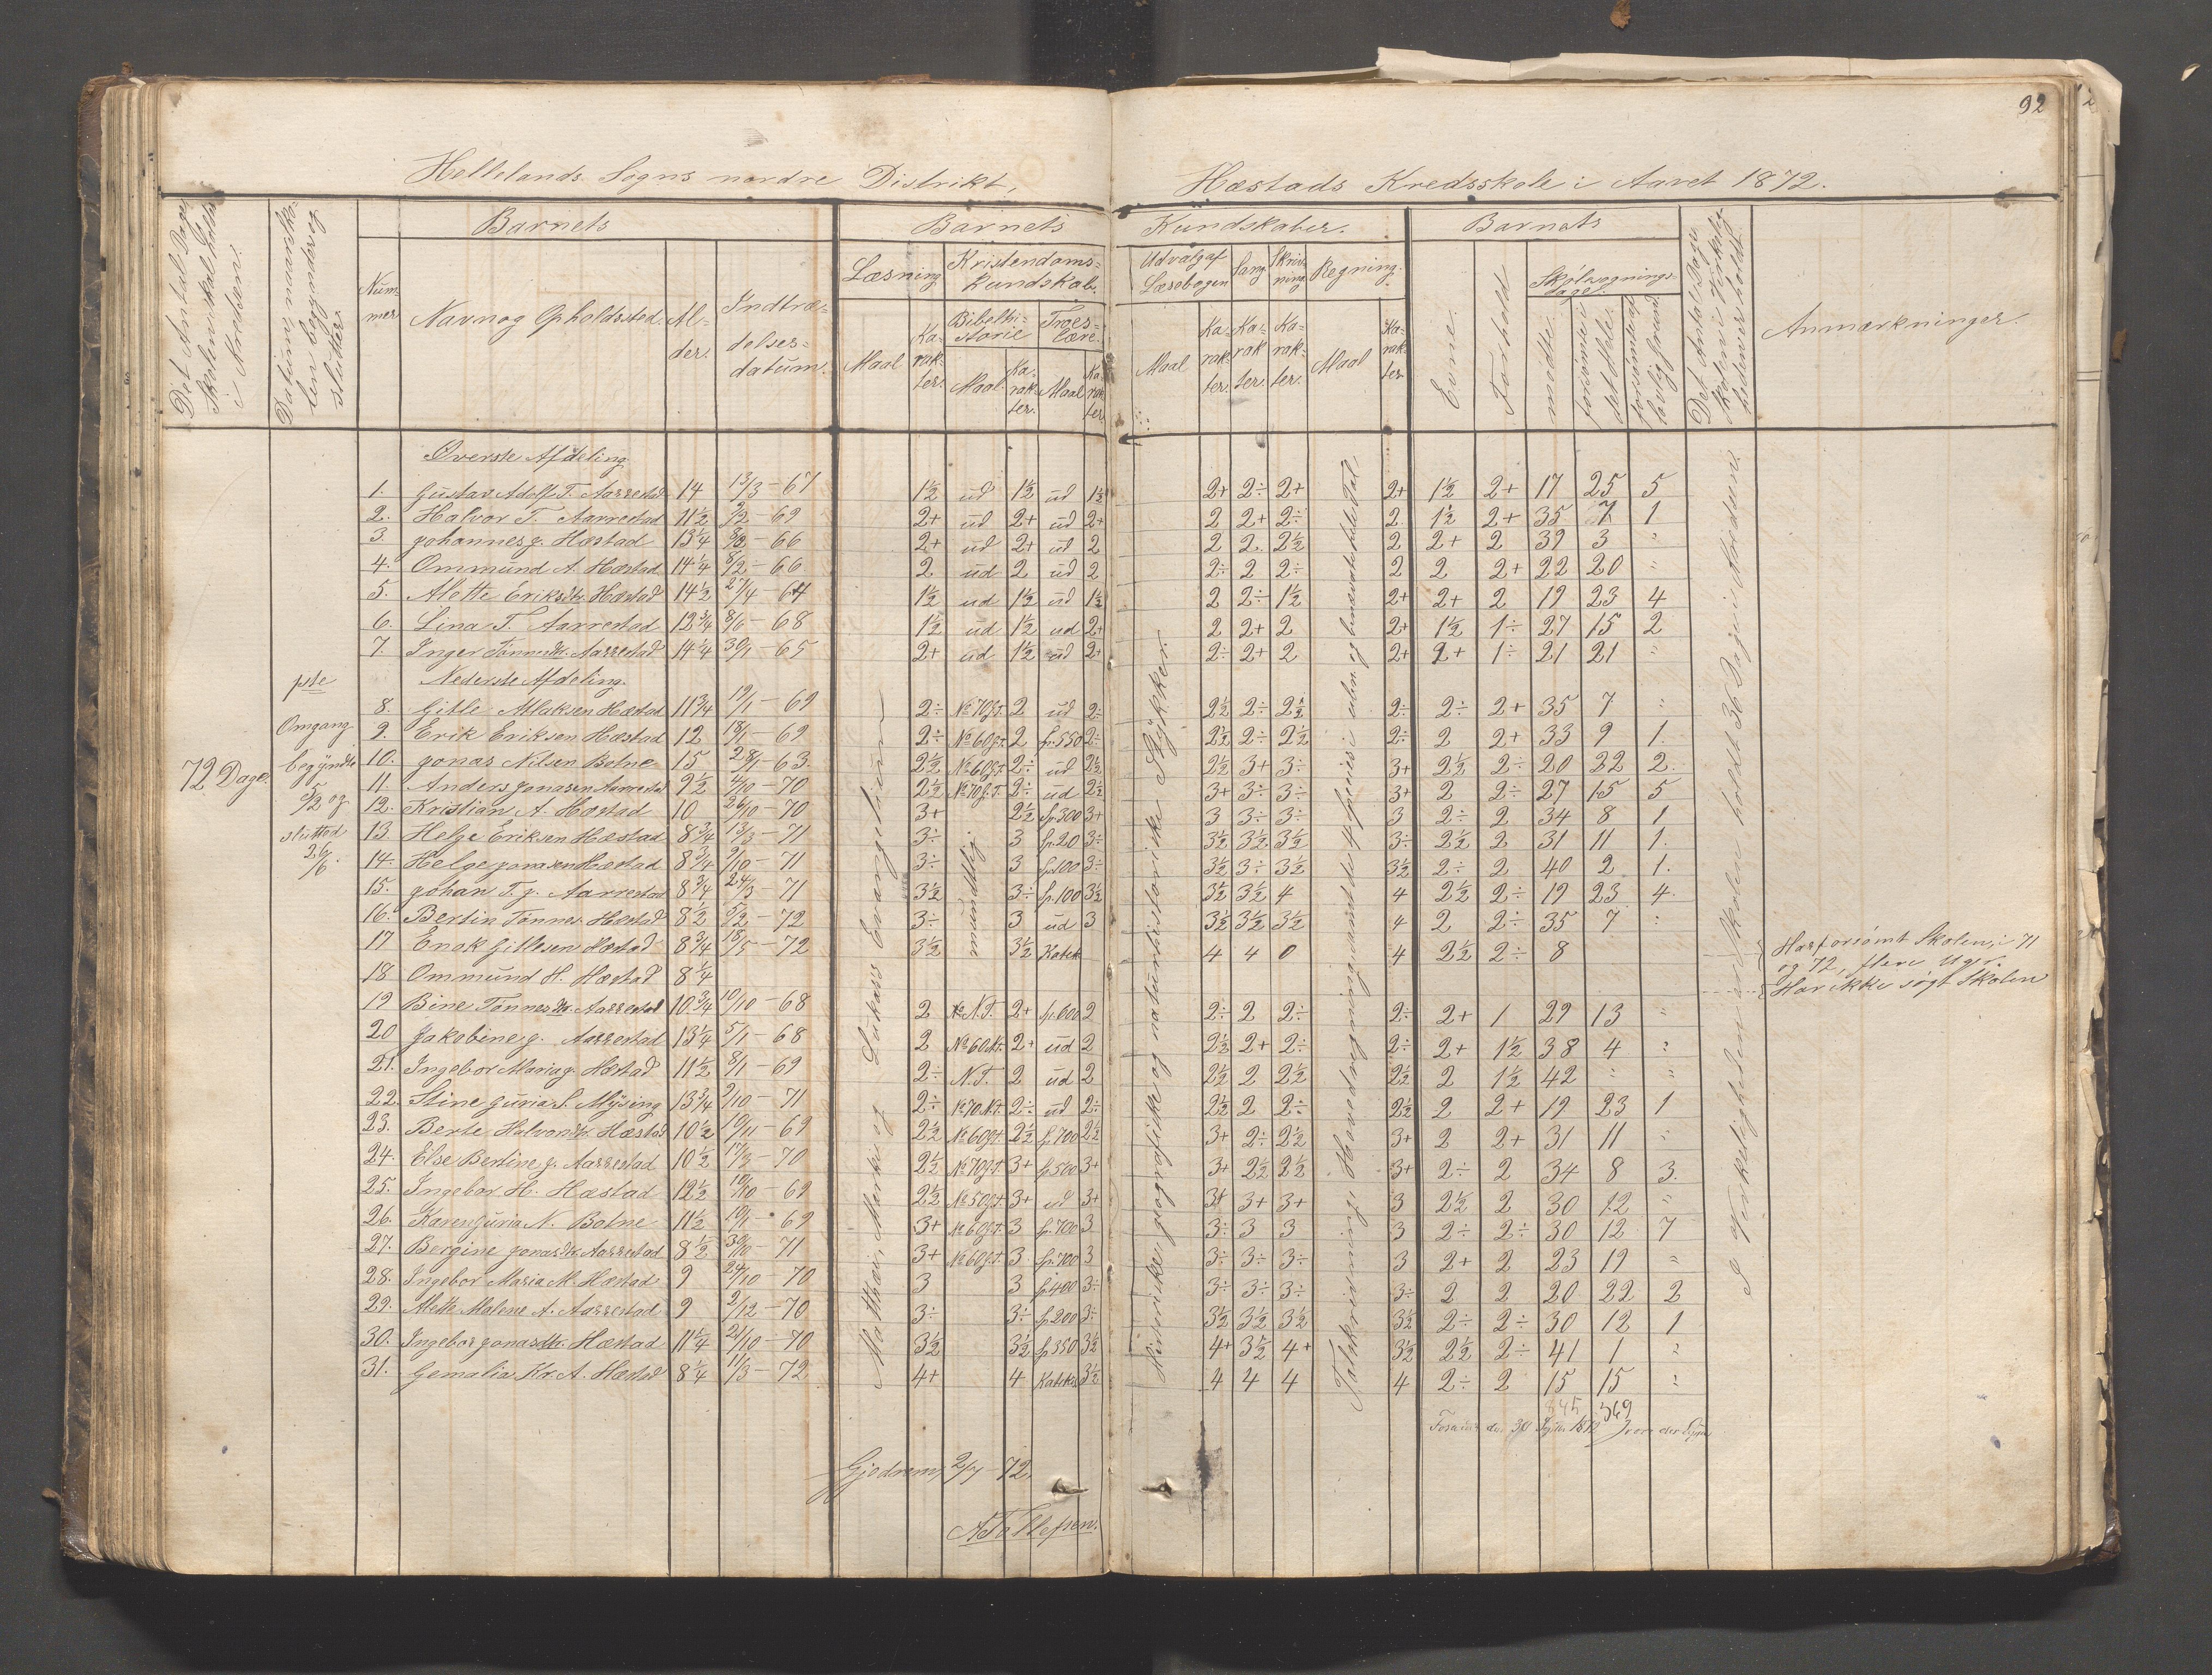 92
Hellelands Sogns nordre Distrikt,
Hæstads Kredsskole i Aaret 1872.
Det Antal Dage Skolen skal holdes i Kredsen.
Datum, naar Skolen begynder og slutter.
Barnets
Nummer
Navn og Opholdssted.
Alder.
Indtrædelsesdatum.
Barnets Kundskaber.
Læsning
Kristendomskundskab.
Bibelhistorie
Troeslære.
Maal
Karakter.
Maal
Karakter.
Maal
Karakter
Udvalg af Læsebogen
Sang
Skrivning
Regning.
Maal
Karakter.
Karakter.
Karakter.
Maal
Karakter
Barnets
Evne.
Forhold
Skolesøgningsdage.
mødte.
forsømte i det Hele.
forsømte af lovlig Grund
Det Antal Dage Skolen i Virkeligheden er holdt.
Anmærkninger.
Øverste Afdeling
1. Gustav Adolf T. Aarrestad 14 13/3 - 67 1½ ud 1½ ud 1½ 2+ 2÷ 2+ 2+ 1½ 2+ 17 25 5
2. Halvor T. Aarrestad 11½ 2/2 - 69 2+ ud 2+ ud 2+ 2 2+ 2÷ 2 1½ 2+ 35 7 1
3. Johannes J. Hæstad 13¼ - 66 2+ ud 2+ ud 2 2 2 2½ 2 2+ 2 39 3 "
4. Ommund A. Hæstad 14¼ 8/2 - 66 2 ud 2 ud 2 2÷ 2 2÷ 2 2 2+ 22 20 "
5. Alette Eriksdtr. Hæstad 14½ 27/4 - 64 1½ ud 1½ ud 1½ 2 2÷ 1½ 2+ 2+ 2 19 23 4
6. Lina T. Aarrestad 12¾ 8/6 - 68 1½ ud 1½ ud 2+ 2 2+ 2 2+ 1½ 1÷ 27 15 2
7. Inger Tønnesdtr. Aarrestad 14¼ 30/1 - 65 2+ ud 1½ ud 2+ 2÷ 2+ 2 2+ 2+ 1÷ 21 21 "
Nederste Afdeling.
8. Gitle Atlaksen Hæstad 11¾ 19/1 - 69 2÷ No 70 g.T. 2 ud 2÷ 2½ 2÷ 2½ 2÷ 2÷ 2+ 35 7 "
9. Erik Eriksen Hæstad 12 18/1 - 69 2÷ No 60 g.T. 2 sp. 550 2÷ 2½ 2÷ 2½ 2÷ 2 2+ 33 9 1
10. Jonas Nilsen Botne 15 28/1 - 63. 2½ No 60 g.T. 2÷ ud 2½ 2½ 3+ 3÷ 3+ 2½ 2÷ 20 22 2.
11. Anders Jonasen Aarrestad 9½ 4/10 - 70 2½ No 70 g.T. 2÷ ud 2½ 3+ 3÷ 3÷ 3+ 2 2÷ 27 15 5
12. Kristian A. Hæstad 10 26/10 - 70 3+ 2½ sp. 300 3+ 3 3÷ 3÷ 3 2÷ 2 34 8 1
13. Helge Eriksen Hæstad 8¾ 13/3 - 71 3÷ 3 sp. 20 3÷ 3½ 3½ 3½ 3÷ 2½ 2 31 11 1.
14. Helge Jonasen Hæstad 8¾ 2/10 - 71 3÷ 3 sp. 100 3÷ 3½ 3÷ 3½ 3½ 2÷ 2 40 2 1.
15. Johan T. J. Aarrestad 8¾ 24/3 - 71 3½ 3÷ sp. 100 3½ 3½ 3½ 4 4 2½ 2÷ 19 23 4.
16. Bertin Tønnes. Hæstad 8½ 5/2 - 72 3÷ 3 ud 3 3½ 3½ 3½ 4 2 2÷ 35 7 "
17 Enok Gitlesen Hæstad 8¾ 18/5 - 72 3½ 3½ Katek 4 4 0 4 2½ 2÷ 8 Har forsømt Skolen, i 71 og 72, flere Uger.
18 Ommund H. Hæstad 8¼ Har ikke søgt Skolen
19 Bine Tønnesdtr. Aarrestad 10¾ 10/10 - 68 2 N.T. 2+ sp. 600 2 2÷ 2 2÷ 2÷ 2+ 1 29 13 "
20 Jakobine J. Aarrestad 13¼ 5/1 - 68 2 No 60 N.T. 2+ ud 2 2½ 2+ 2÷ 2÷ 2+ 1½ 38 4 "
21. Ingebor Maria J. Hæstad 11½ 8/1 - 69 2÷ N.T. 2 ud 2 2½ 2 2½ 2½ 2 1½ 42 " "
22. Stine Guria S. Mysing 13¾ 2/10 - 71 2÷ No 70 N.T. 2÷ ud 2÷ 2½ 2 2÷ 2½ 2 2+ 19 23 1
23. Berte Halvorsdtr. Hæstad 10½ 19/11 - 69 2½ No 60 g.T. 2½ sp. 700 2½ 3+ 2÷ 2½ 3+ 2 2+ 31 11 "
24. Else Bertine J. Aarrestad 10½ 17/3 - 70 2½ No 70 g.T. 3+ sp. 500 3+ 3+ 2½ 2½ 3+ 2÷ 2 34 8 3.
25. Ingebor H. Hæstad 12½ 10/10 - 69 2½ No 50 g.T. 3+ ud 3+ 3+ 3+ 3+ 3 2½ 2 30 12 "
26. Karen Guria N. Botne 11½ 19/1 - 69 3+ No 60 g.T. 3 sp. 700 3 3÷ 3 3 3 2÷ 2÷ 30 12 7
27. Bergine Jonasdtr. Aarrestad 8½ 30/10 - 71 3+ No 60 g.T. 3 sp. 700 3 3÷ 3÷ 3÷ 3 2+ 2 23 19 "
28. Ingebor Maria M. Hæstad 9 24/10 - 70 3 3 sp. 400 3÷ 3÷ 3÷ 3÷ 3÷ 2 2 20 22 2
29. Alette Malene A. Aarrestad 9 2/12 - 70 3÷ 3÷ sp. 200 3÷ 3½ 3½ 3½ 3½ 2÷ 2÷ 30 12 1
30. Ingebor Jonasdtr. Hæstad 11¼ 21/10 - 70 3½ 3½ sp. 350 3½ 4+ 3½ 4+ 3½ 2½ 2÷ 41 1 "
31. Gemalia Kr. A. Hæstad 8¼ 11/3 - 72 4+ 4 Katek 3½ 4 4 4 4 2÷ 2 15 15 "
72 Dage.
1ste
Omgang
begyndte
5/2 og
slutted
26/6.
Mattæi, Markus og Lukas's Evangelium
mundtlig.
Historiske, geografiske og naturhistoriske Stykker.
Talskrivning i Hovedregning anvendt det Species i ubn. og benævnte hele Tal
I Virkeligheden er Skolen holdt 36 Dage i Kredsen.
845 349
Gjedrem, 2/7 - 72.
A Tollefsen.